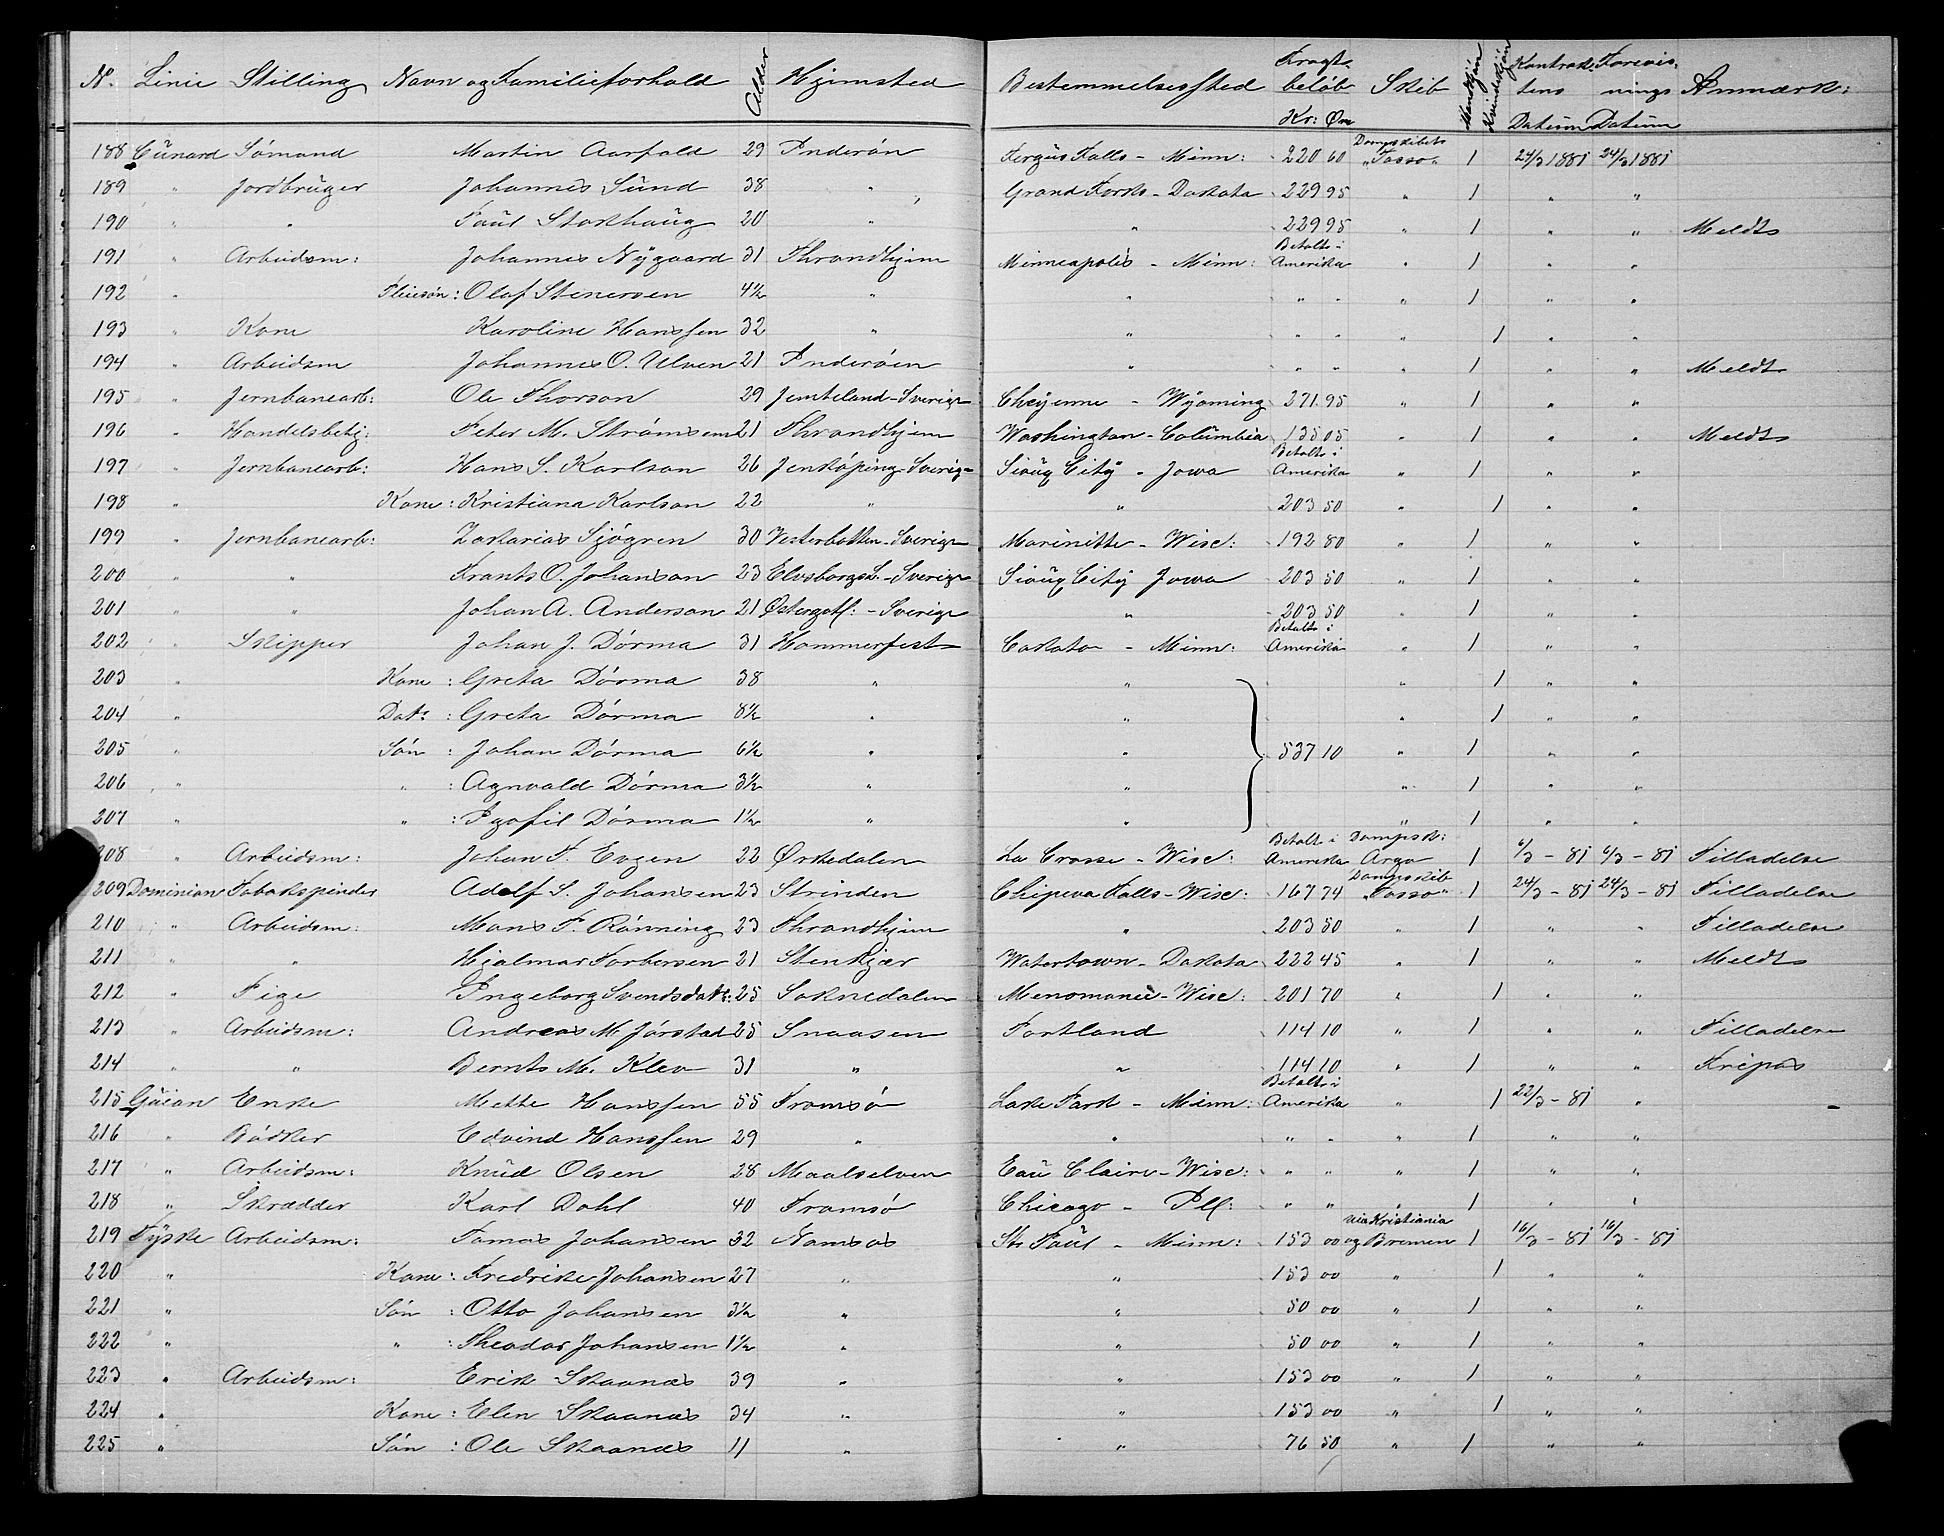 N. Linie Stilling Navn og Familieforhold Alder Hjemsted Bestemmelsessted Fragtbeløb Kr: Øre Skib Mandkjøn Kvindekjøn Kontraktens Datum Forevisnings Datum Anmærk:
188 Cunard Sömand Martin Aarfald 29 Inderöen Fergus Falls - Minn: 220 60 Dampskibets "Tasso" 1 24/3 1881 24/3 1881
189 " Jordbruger Johannes Sund 38 " Grand Forks - Dakota 229 95 " 1 " "
190 " " Paul Stokhaug 20 " " 229 95 " 1 " " Meldt
191 " Arbeidsm: Johannes Nygaard 31 Throndhjem Minneapolis - Minn: Betalt i Amerika " 1 " "
192 " Pleiesön: Olaf Stenersen 4½ " " " " " 1 " "
193 " Kone Karoline Hanssen 32 " " " " " 1 " "
194 " Arbeidsm Johannes O. Ulven 21 Inderöen " " " " 1 " " Meldt
195 " Jernbanearb: Ole Thorson 29 Jemteland - Sverige Cheyenne - Wyoming 271 95 " 1 " "
196 " Handelsbetj: Peter M. Strömsem 21 Throndhjem Washington - Columbia 135 05 " 1 " " Meldt
197 " Jernbanearb: Hans S. Karlson 26 Jenköping - Sverige Sioux City - Jowa Betalt i Amerika " 1 " "
198 " Kone: Kristiana Karlson 22 " " 203 50 " 1 " "
199 " Jernbanearb: Zakarias Sjögren 30 Vesterbotten - Sverige Marinette - Wisc: 192 80 " 1 " "
200 " " Frants O. Johanson 23 Elvsborgs L. - Sverige Sioux City Jowa 203 50 " 1 " "
201 " " Johan A. Anderson 21 Østergötl: - Sverige " 203 50 " 1 " "
202 " Skipper Johan J. Dörma 31 Hammerfest Cokato - Minn: Betalt i Amerika " 1 " "
203 " Kone: Greta Dörma 38 " " " 1 " "
204 " Datr: Greta Dörma 8½ " " " 1 " "
205 " Sön: Johan Dörma 6½ " " 537 10 " 1 " "
206 " " : Agnvald Dörma 3½ " " " 1 " "
207 " " : Igafil Dörma 1½ " " " 1 " "
208 " Arbeidsm: Johan F. Evgen 22 Ørkedalen La Crosse - Wisc: Betalt i Amerika Dampsk: Argo 1 6/3 - 81 6/3 - 81 Tilladelse
209 Dominian Tobakspinder Adolf S. Johansen 23 Strinden Chipeva Falls - Wisc: 167 74 Dampskib "Tasso" 1 24/3 - 81 24/3 - 81 Tilladelse
210 " Arbeidsm: Mons P. Rönning 23 Throndhjem " 203 50 " 1 " " Tilladelse
211 " " Hjalmar Torbersen 21 Stenkjær Watertown - Dakota 222 45 " 1 " " Meldt
212 " Pige Ingeborg Svendsdatr: 25 Soknedalen Menomonee - Wisc: 201 70 " 1 " "
213 " Arbeidsm: Andreas M. Jörstad 25 Snaasen Portland 114 10 " 1 " " Tilladelse
214 " " Bernts M. Klev 31 " " 114 10 " 1 " " Fripas
215 Guion Enke Mette Hanssen 55 Tromsö Lake Park - Minn: Betalt i Amerika " 1 22/3 - 81 "
216 " Bödker Edvind Hanssen 29 " " " " " 1 " "
217 " Arbeidsm: Knud Olsen 28 Maalselven Eau Claire - Wisc: " " " 1 " "
218 " Skrædder Karl Dahl 40 Tromsö Chicago - Ill: " " " 1 " "
219 Tyske Arbeidsm: Tomas Johansen 32 Namsos St. Paul - Minn: 153 00 via Kristiania og Bremen 1 16/3 - 81 16/3 - 81
220 " Kone: Fredrike Johansen 27 " " 153 00 " 1 " "
221 " Sön: Otto Johansen 3½ " " 50 00 " 1 " "
222 " " : Theodor Johansen 1½ " " 50 00 " 1 " "
223 " Arbeidsm: Erik Skaanæs 39 " " 153 00 " 1 " "
224 " Kone: Elen Skaanæs 34 " " 153 00 " 1 " "
225 " Sön: Ole Skaanæs 11 " " 76 50 " 1 " "